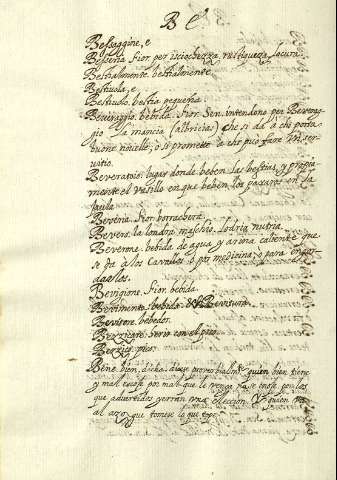 Be
Bessaggine, e
Besseria Fior per isciochezza, rustiqueza, locura.
Bestialmente. bestialmente.
Bestiuola, e
Bestiuolo. bestia pequeña.
Beveraggio. bebida. Fior. Sen. intendono per Beverag-
gio la mancia (albricias) che si dà à chi porta
buone novelle, o si promette à chi può fare un ser-
vitio.
Beveratoio. lugar donde beben las bestias, y propia-
mente el vasillo en que beben los paxaros en la
jaula.
Beveria. Fior. borrachera.
Bevero. la londra maschio. Lodria nutria.
Beverone. bebida de agua y arina caliente que
se da a los Cavallos o por medicina, o para engor-
darlos.
Bevigione. Fior. bebida.
Bevimento. bebida. Bevitura.
Bevitore. bebedor.
Bezzicare. herir con el pico.
Bene. bien, dicha. dizese proverbialmte. quien bien tiene
y mal escoje por mal que le venga no se enoje por los
que advertidos yerran una eleccion. Y quien va
al año, que tomese lo que tope.